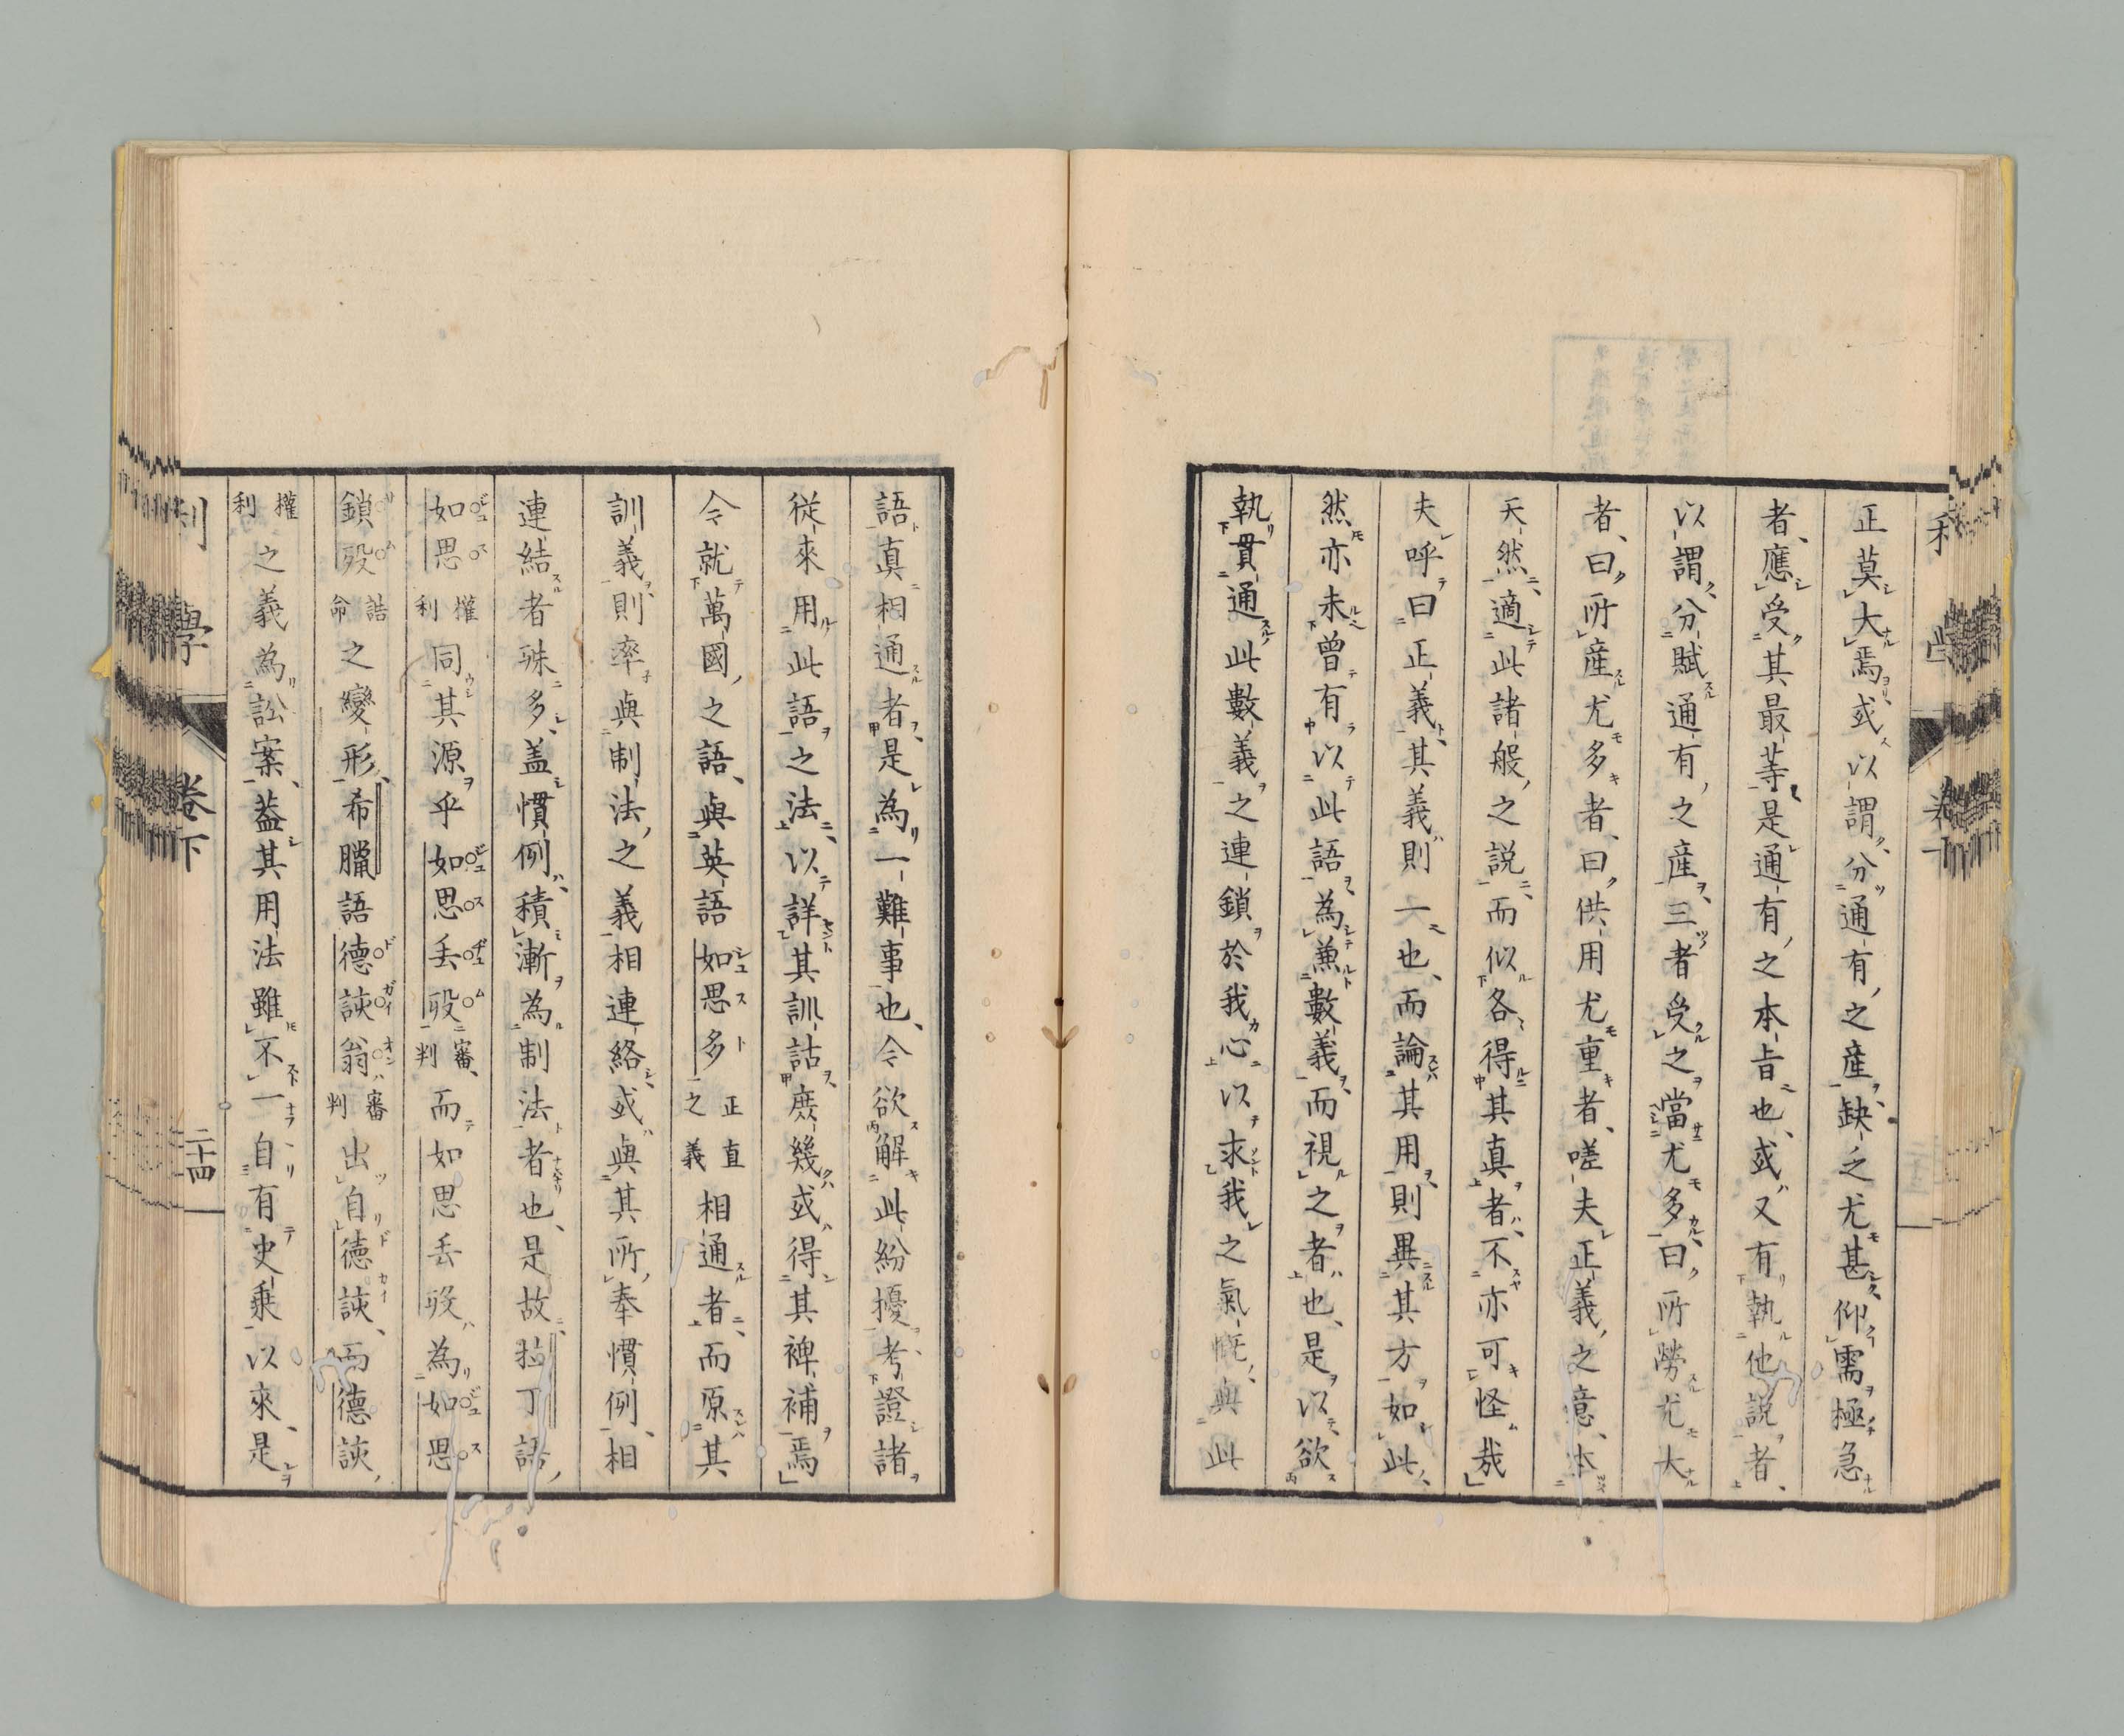 正莫大焉或以謂分通有之產缺乏尤甚仰需極急
者、應受其最等是通有之本旨也、或又有執他說者、
以謂分賦通有之產三者受之當尤多曰所勞尤大
者、曰所產尤多者、曰供用尤重者、嗟夫正義之意、本
天然適此諸般之說而似各得其真者、不亦可怪哉
夫呼曰正義其義則一也、而論其用則異其方如此
然亦未曾有以此語為兼數義而視之者也、是以欲
執貫通此數義之連鎖於我心以求我之氣慨與此
語真相通者是為一難事也、今欲解此紛擾考證諸
從來用此語之法以詳其訓詁庶幾或得其裨補焉
今就萬國之語、與英語如思多正直之義相通者而原其
訓義則率與制法之義相連絡或與其所奉慣例、相
連結者殊多、盖慣例積漸為制法者也、是故拉丁語
如思權利同其源乎如思丢殹審判而如思丢殹為如思
鎖殹誥命之變形、希臘語德誒翁審判出自德誒、而德誒
權利之義為訟案、葢其用法雖不一自有史乘以來、是
利學 卷下 二十四